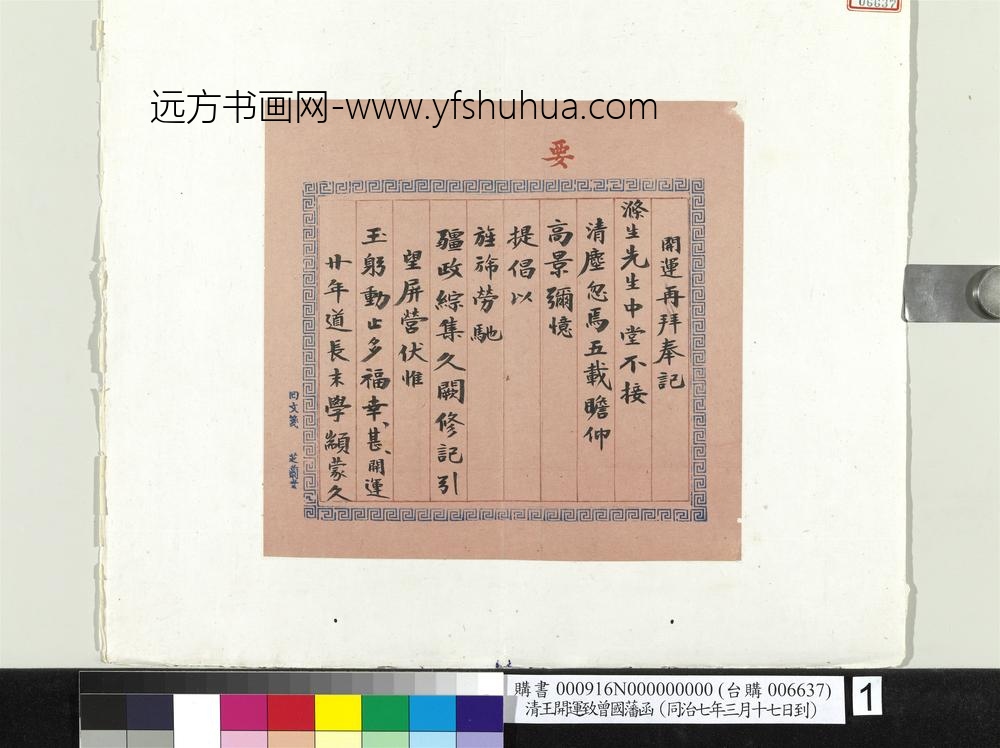 06637
远方书画网-www.yfshuhua.com
要
開運再拜奉記
滌生先生中堂不接
清塵忽焉五載瞻仰
高景彌憶
提倡以
旌斾勞馳
疆政綜集久闕修記引
望屏營伏惟
玉躬動止多福幸甚、開運
廿年道長末學顓蒙久
回文箋
購書 000916N000000000 (台購 006637)
清王開運致曾國藩函 (同治七年三月十七日到)
1